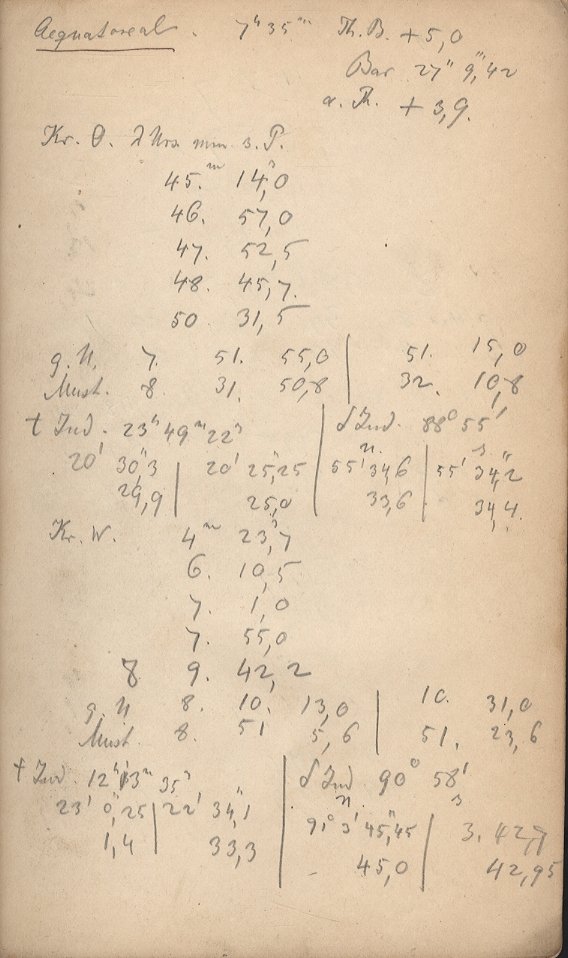 Aequatoreal. 7h 35m Th. B. +5,0
Bar 27" 9,"'42
a. Th. + 3,9.
Kr. O. λ Urs. min. s. P.
45.m 14,s0
46. 57,0
47. 52,5
48. 45,7.
50 31,5
g. U. 7. 51. 55,0 | 51. 15,0
Must. 8. 31. 50,8 | 32. 10,8
t Ind. 23h 49m 22s | δ Ind. 88° 55'
n. s
20' 30"3 | 20' 25,"25 | 55' 34,6 | 55' 34,"2
29,9 | 25,0 | 33,6 | 34,4.
Kr. W. 4m 23,s7
6. 10,5
7. 1,0
7. 55,0
8 9. 42,2
g. U 8. 10. 13,0 | 10. 31,0
Must. 8. 51 5,6 | 51. 23,6
t Ind. 12h 13m 35s | δ Ind 90° 58'
n s
23' 0,"25 | 22' 34,"1 | 91° 3' 45,"45 | 3. 42,7
1,4 | 33,3 | 45,0 | 42,95